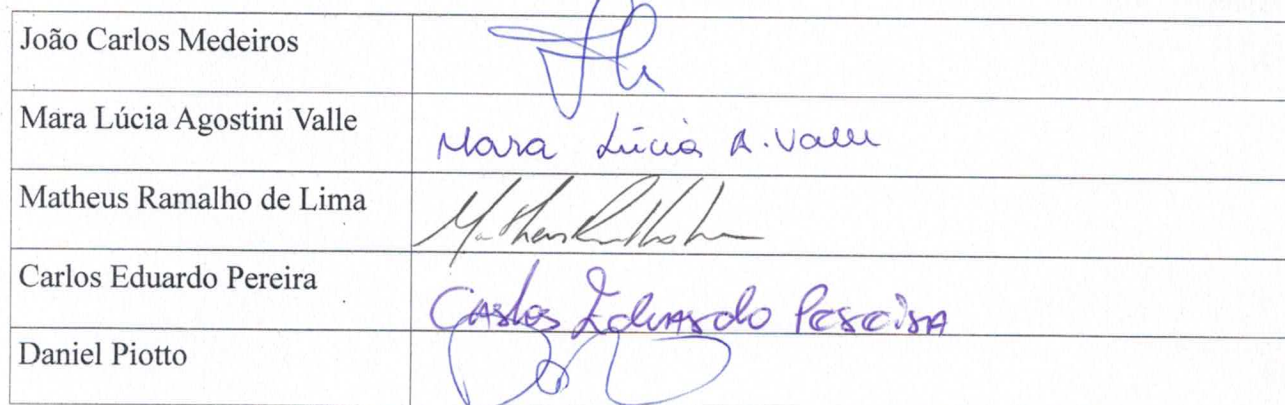 João Carlos Medeiros
Mara Lúcia Agostini Valle Mara Lúcia A. Valle
Matheus Ramalho de Lima
Carlos Eduardo Pereira Carlos Eduardo Pereira
Daniel Piotto